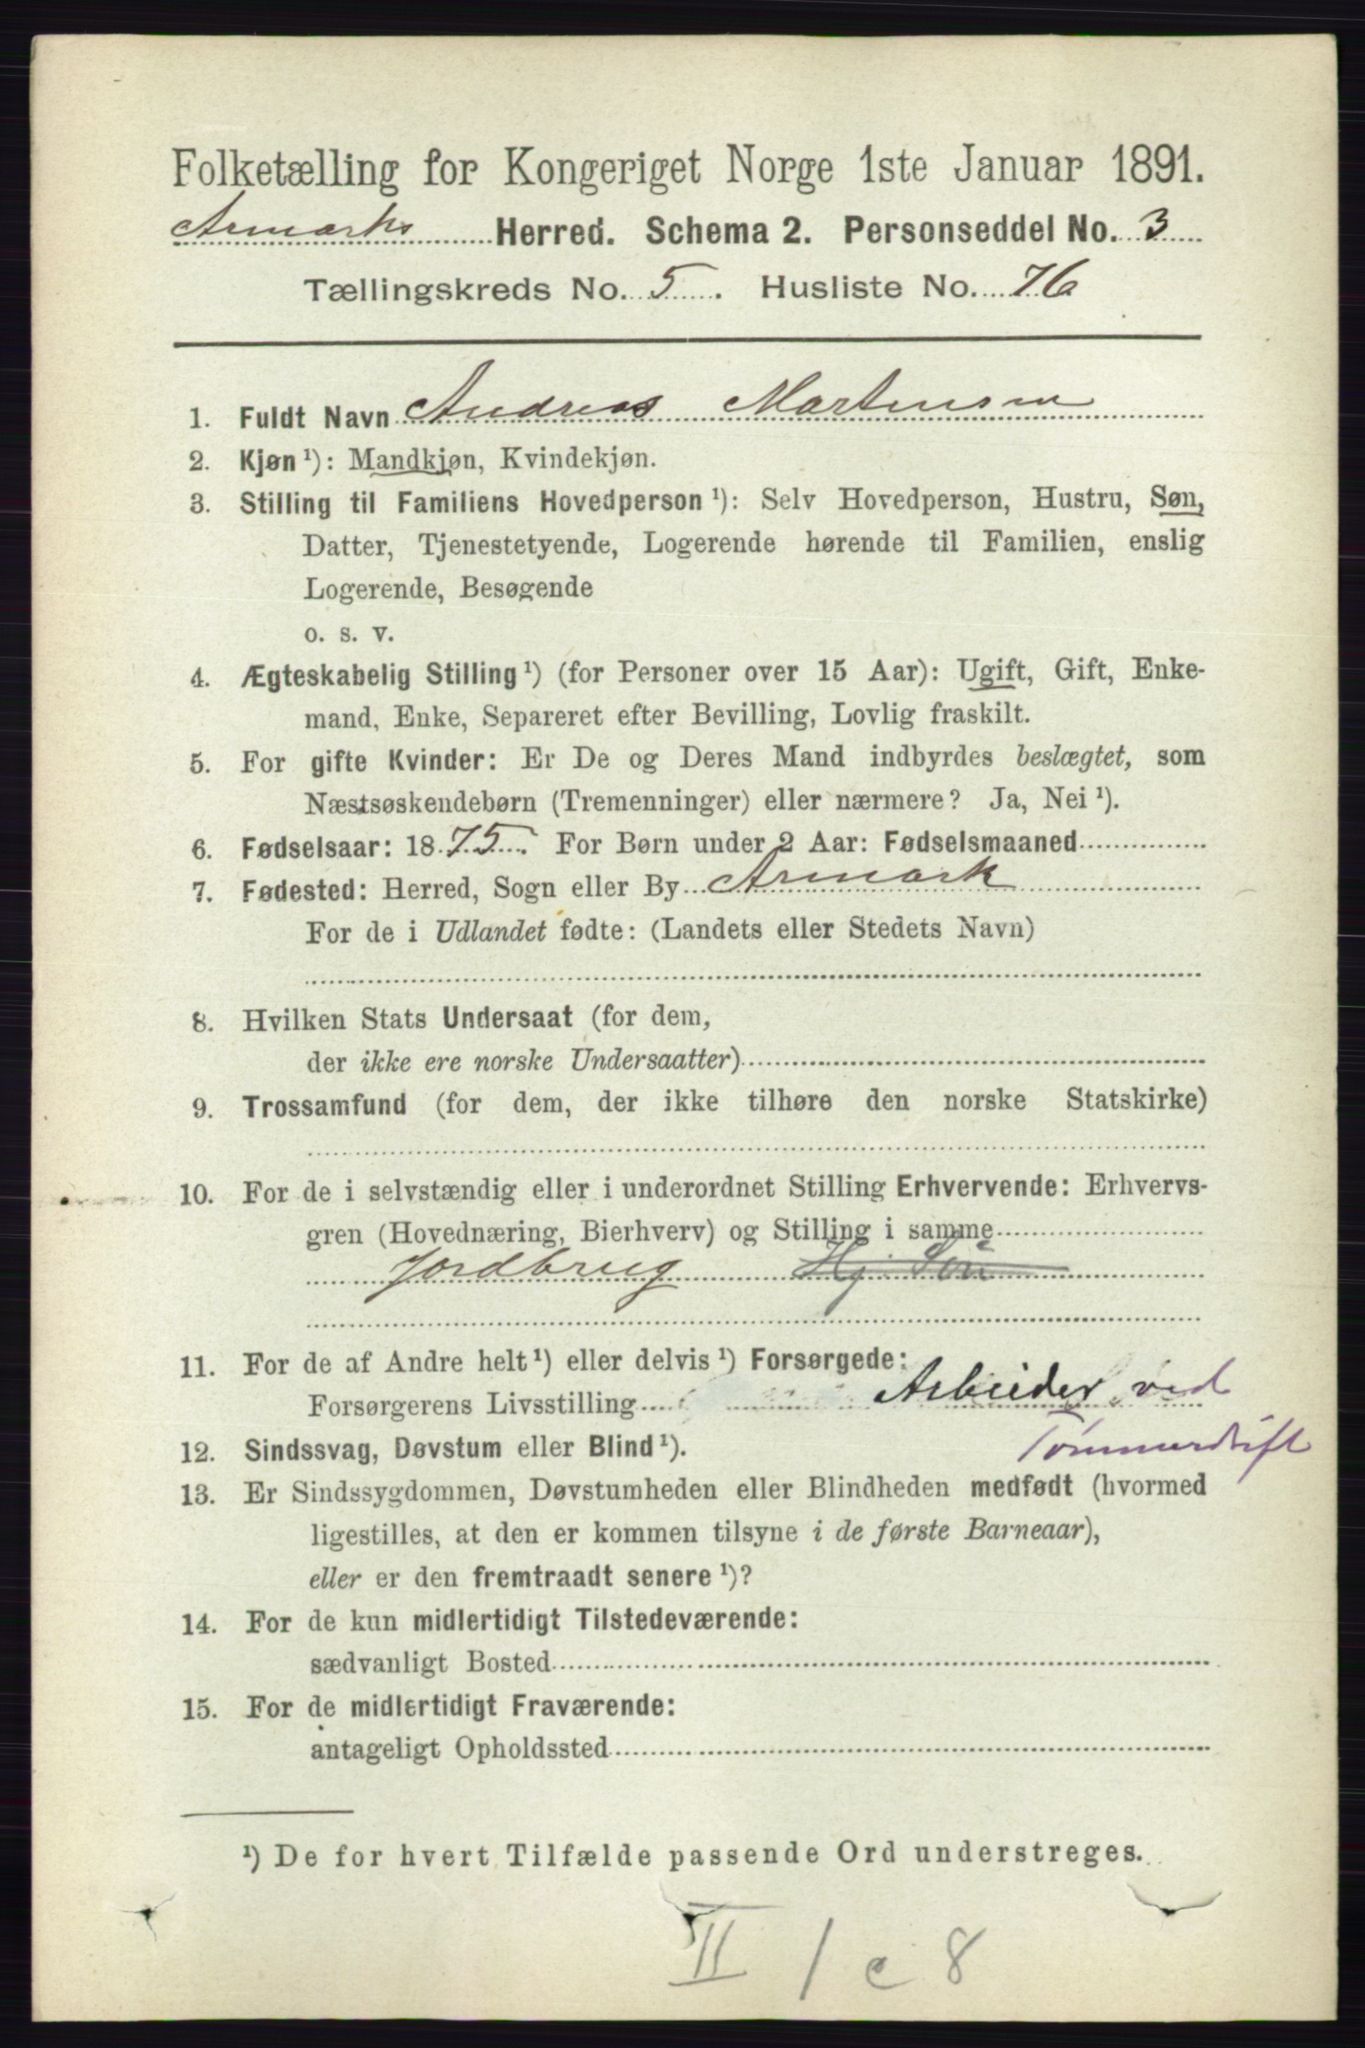 Folketælling for Kongeriget Norge 1ste Januar 1891.
Aremarks Herred. Schema 2. Personseddel No. 3
Tællingskreds No. 5. Husliste No. 76
1. Fuldt Navn Andreas Martinsen
2. Kjøn ¹): Mandkjøn, Kvindekjøn.
3. Stilling til Familiens Hovedperson ¹): Selv Hovedperson, Hustru, Søn,
Datter, Tjenestetyende, Logerende hørende til Familien, enslig
Logerende, Besøgende
o. s. v.
4. Ægteskabelig Stilling ¹) (for Personer over 15 Aar): Ugift, Gift, Enke-
mand, Enke, Separeret efter Bevilling, Lovlig fraskilt.
5. For gifte Kvinder: Er De og Deres Mand indbyrdes beslægtet, som
Næstsøskendebørn (Tremenninger) eller nærmere? Ja, Nei ¹).
6. Fødselsaar: 1875. For Børn under 2 Aar: Fødselsmaaned
7. Fødested: Herred, Sogn eller By Aremark
For de i Udlandet fødte: (Landets eller Stedets Navn)
8. Hvilken Stats Undersaat (for dem,
der ikke ere norske Undersaatter)
9. Trossamfund (for dem, der ikke tilhøre den norske Statskirke)
10. For de i selvstændig eller i underordnet Stilling Erhvervende: Erhvervs-
gren (Hovednæring, Bierhverv) og Stilling i samme
Jordbrug Hj. Søn
11. For de af Andre helt ¹) eller delvis ¹) Forsørgede:
Forsørgerens Livsstilling Arbeider ved
Tømmerdrift
12. Sindssvag, Døvstum eller Blind ¹).
13. Er Sindssygdommen, Døvstumheden eller Blindheden medfødt (hvormed
ligestilles, at den er kommen tilsyne i de første Barneaar),
eller er den fremtraadt senere ¹)?
14. For de kun midlertidigt Tilstedeværende:
sædvanligt Bosted
15. For de midlertidigt Fraværende:
antageligt Opholdssted
¹) De for hvert Tilfælde passende Ord understreges.
II 1 c 8